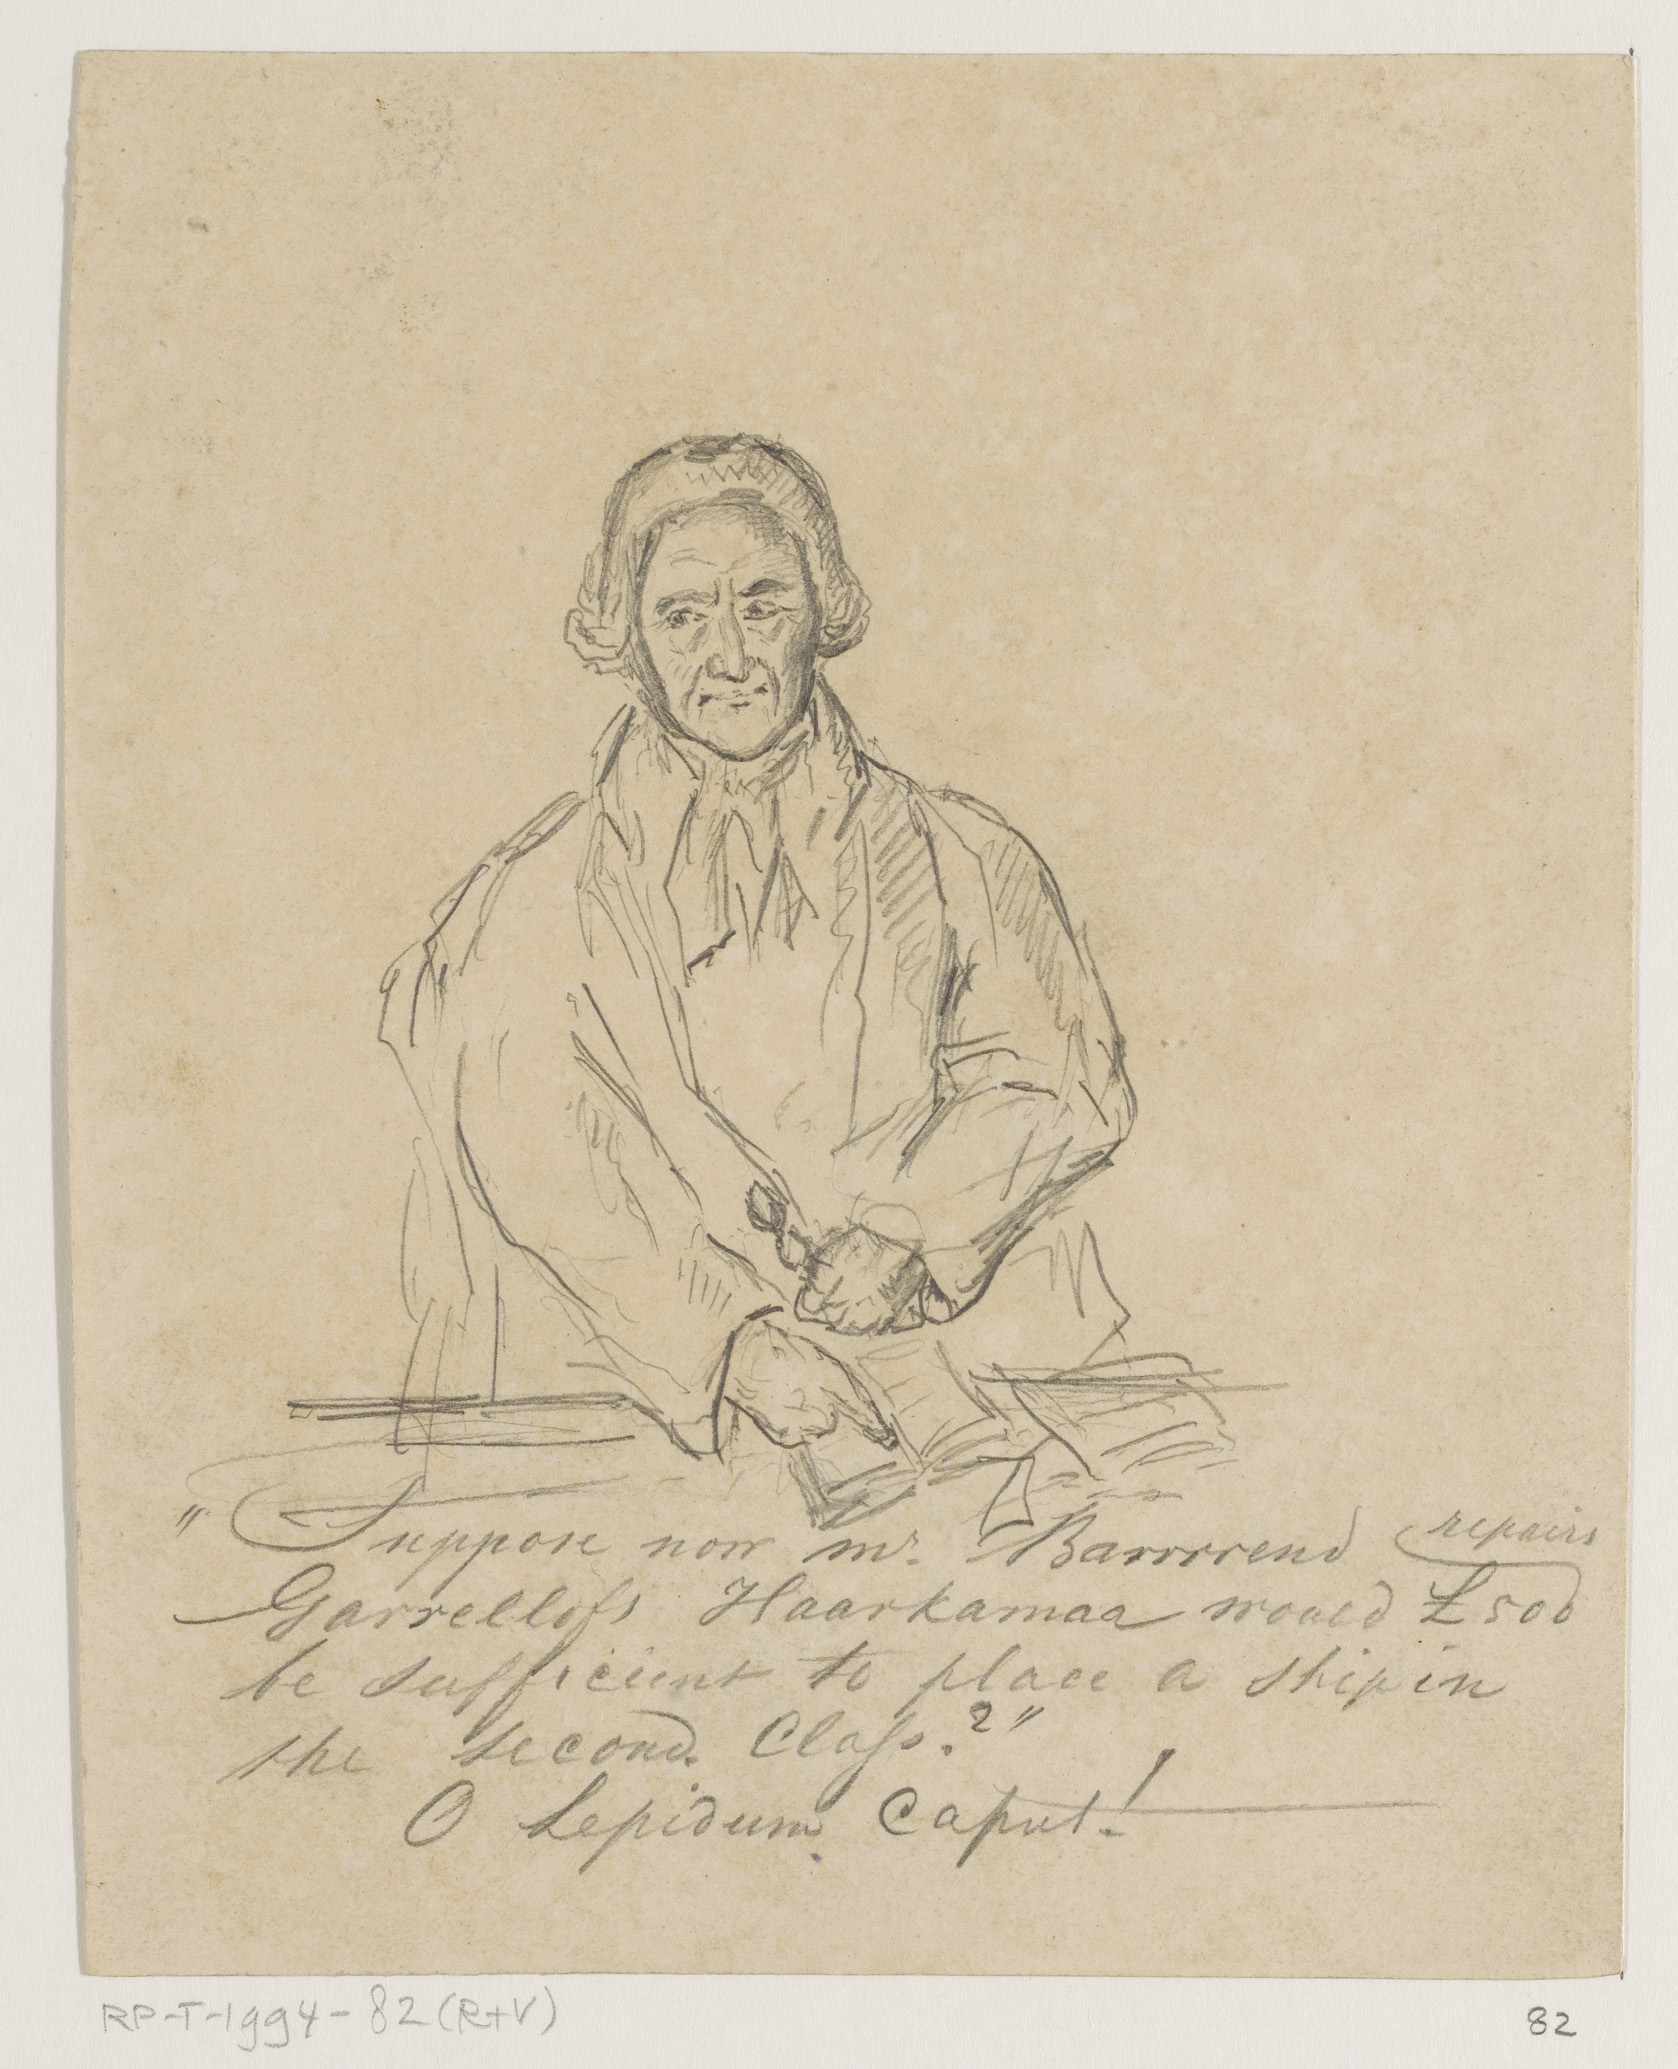 " Suppose now Mr. Barrrrend repairs
Garrellofs Haarkamaa would £500
be sufficient to place a ship in
the second Class.?"
O Lepidum Caput!
RP-T-1994-82(R+V)
82